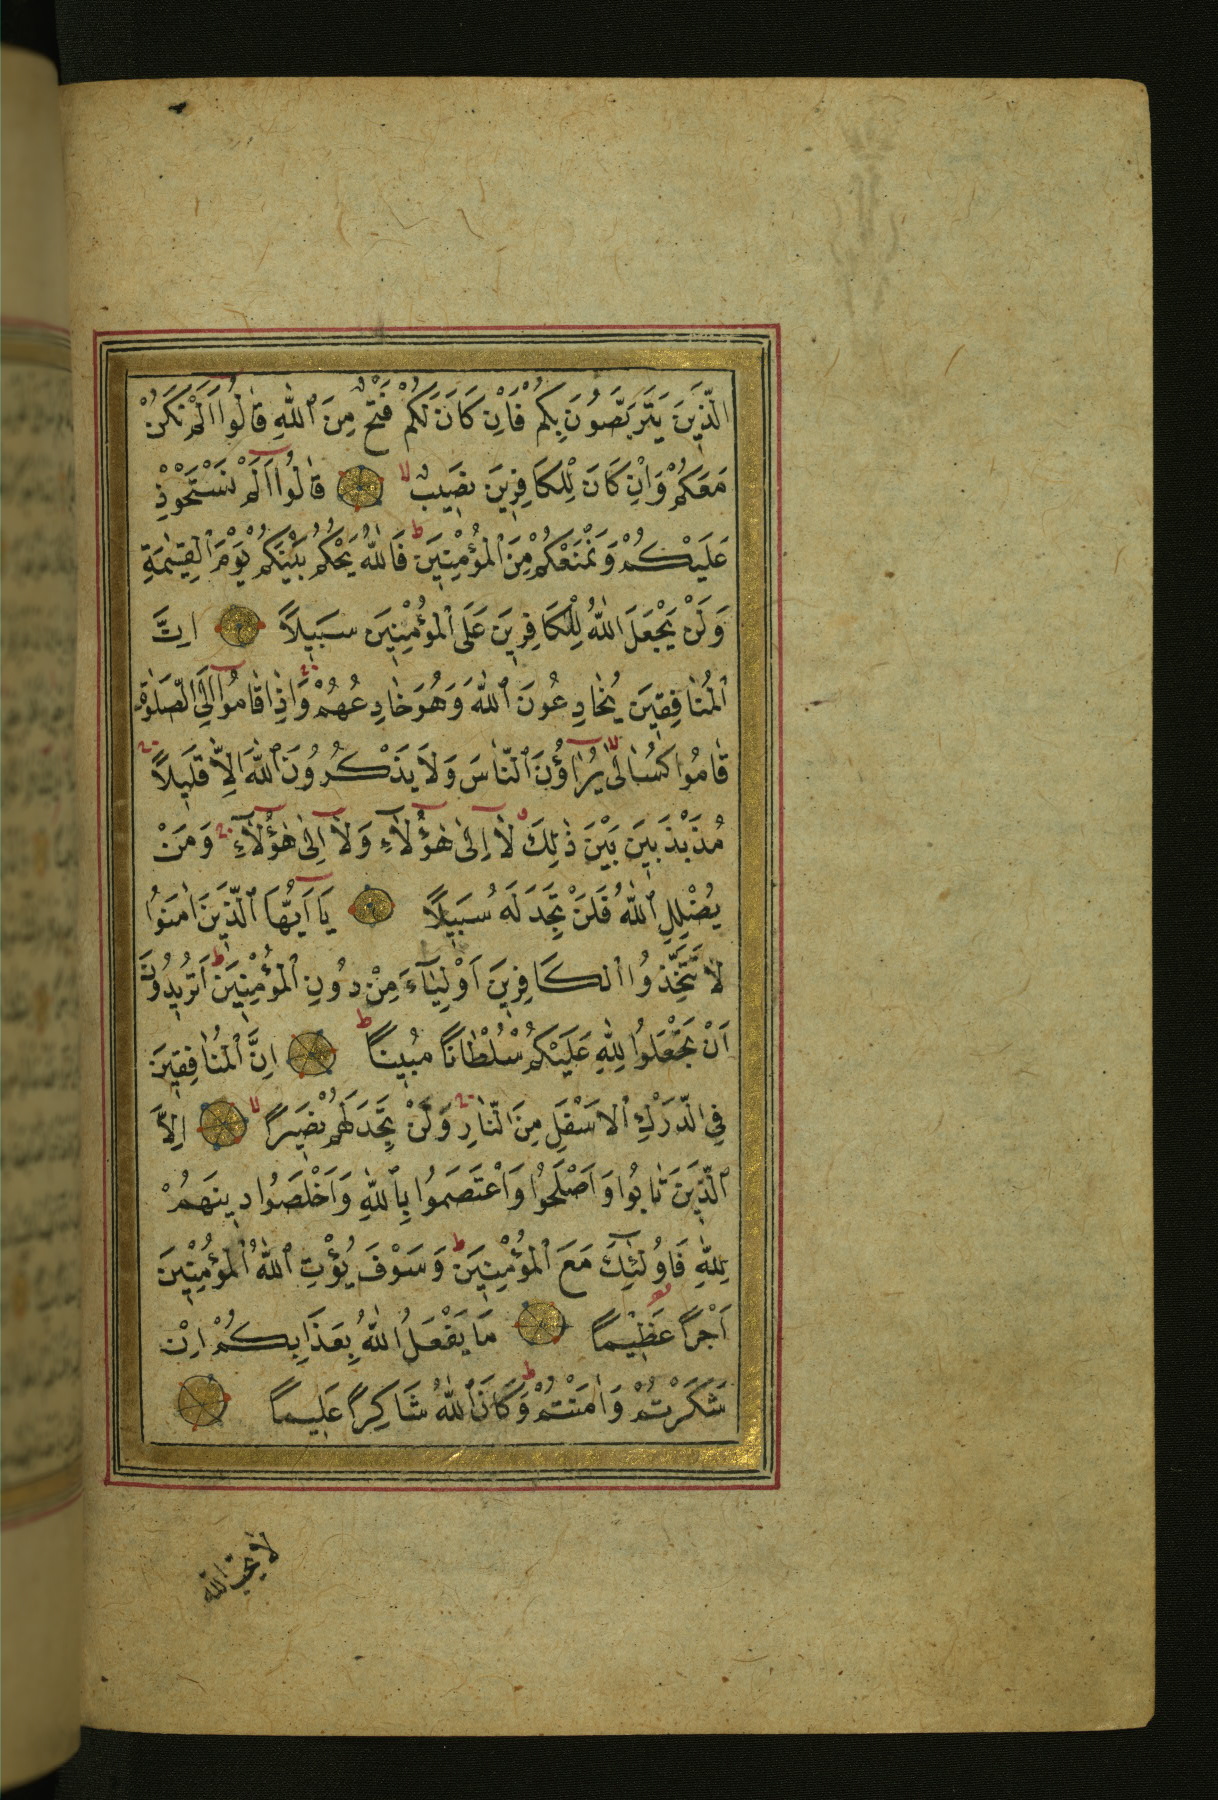 الَّذِينَ يَتَرَبَّصُونَ بِكُمْ فَاِنْ كَانَ لَكُمْ فَتْحٌ مِنَ اللّٰهِ قَالُوا اَلَمْ نَكُنْ
مَعَكُمْ وَاِنْ كَانَ لِلْكَافِرِينَ نَصِيبٌ قَالُوا اَلَمْ نَسْتَحْوِذْ
عَلَيْكُمْ وَنَمْنَعْكُمْ مِنَ الْمُؤْمِنِينَ فَاللّٰهُ يَحْكُمُ بَيْنَكُمْ يَوْمَ الْقِيٰمَةِ
وَلَنْ يَجْعَلَ اللّٰهُ لِلْكَافِرِينَ عَلَى الْمُؤْمِنِينَ سَبِيلاً اِنَّ
الْمُنَافِقِينَ يُخَادِعُونَ اللّٰهَ وَهُوَ خَادِعُهُمْ وَاِذَا قَامُوا اِلَى الصَّلٰوةِ
قَامُوا كُسَالٰى يُرَاؤُنَ النَّاسَ وَلَا يَذْكُرُونَ اللّٰهَ اِلَّا قَلِيلاً
مُذَبْذَبِينَ بَيْنَ ذٰلِكَ لَا اِلٰى هٰؤُلَاءِ وَلَا اِلٰى هٰؤُلَاءِ وَمَنْ
يُضْلِلِ اللّٰهُ فَلَنْ تَجِدَ لَهُ سَبِيلاً يَا اَيُّهَا الَّذِينَ اٰمَنُوا
لَا تَتَّخِذُوا الْكَافِرِينَ اَوْلِيَاءَ مِنْ دُونِ الْمُؤْمِنِينَ اَتُرِيدُونَ
اَنْ تَجْعَلُوا لِلّٰهِ عَلَيْكُمْ سُلْطَانًا مُبِينًا اِنَّ الْمُنَافِقِينَ
فِي الدَّرْكِ الْاَسْفَلِ مِنَ النَّارِ وَلَنْ تَجِدَ لَهُمْ نَصِيرًا اِلَّا
الَّذِينَ تَابُوا وَاَصْلَحُوا وَاعْتَصَمُوا بِاللّٰهِ وَاَخْلَصُوا دِينَهُمْ
لِلّٰهِ فَاُولٰئِكَ مَعَ الْمُؤْمِنِينَ وَسَوْفَ يُؤْتِ اللّٰهُ الْمُؤْمِنِينَ
اَجْرًا عَظِيمًا مَا يَفْعَلُ اللّٰهُ بِعَذَابِكُمْ اِنْ
شَكَرْتُمْ وَاٰمَنْتُمْ وَكَانَ اللّٰهُ شَاكِرًا عَلِيمًا
لا يحب الله